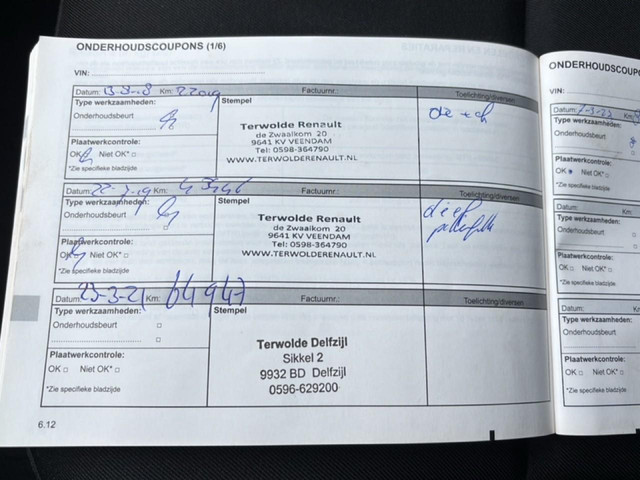 ONDERHOUDSCOUPONS (1/6)
VIN:
Datum: Km: 22019 Factuurnr.: Toelichting/diversen
Type werkzaamheden:
Onderhoudsbeurt
Stempel
Terwolde Renault
de Zwaaikom 20
9641 KV VEENDAM
Tel: 0598-364790
WWW.TERWOLDERENAULT.NL
Plaatwerkcontrole:
OK Niet OK*
*Zie specifieke bladzijde
Datum: Km: Factuurnr.: Toelichting/diversen
Type werkzaamheden:
Onderhoudsbeurt
Stempel
Terwolde Renault
de Zwaaikom 20
9641 KV VEENDAM
Tel: 0598-364790
WWW.TERWOLDERENAULT.NL
Plaatwerkcontrole:
OK Niet OK*
*Zie specifieke bladzijde
Datum: 23-3-21 Km: 64947 Factuurnr.: Toelichting/diversen
Type werkzaamheden:
Onderhoudsbeurt
Stempel
Terwolde Delfzijl
Sikkel 2
9932 BD Delfzijl
0596-629200
Plaatwerkcontrole:
OK Niet OK*
*Zie specifieke bladzijde
6.12
ONDERHOUDSCOUP
VIN:
Datum: Km:
Type werkzaamheden:
Onderhoudsbeurt
Plaatwerkcontrole:
OK Niet OK*
*Zie specifieke bladzijde
Datum: Km:
Type werkzaamheden:
Onderhoudsbeurt
Plaatwerkcontrole:
OK Niet OK*
*Zie specifieke bladzijde
Datum: Km:
Type werkzaamheden:
Onderhoudsbeurt
Plaatwerkcontrole:
OK Niet OK*
*Zie specifieke bladzijde